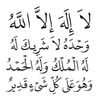 لَا إِلَهَ إِلَّا اللَّهُ
وَحْدَهُ لَا شَرِيكَ لَهُ
لَهُ الْمُلْكُ وَلَهُ الْحَمْدُ
وَهُوَ عَلَى كُلِّ شَيْءٍ قَدِيرٌ